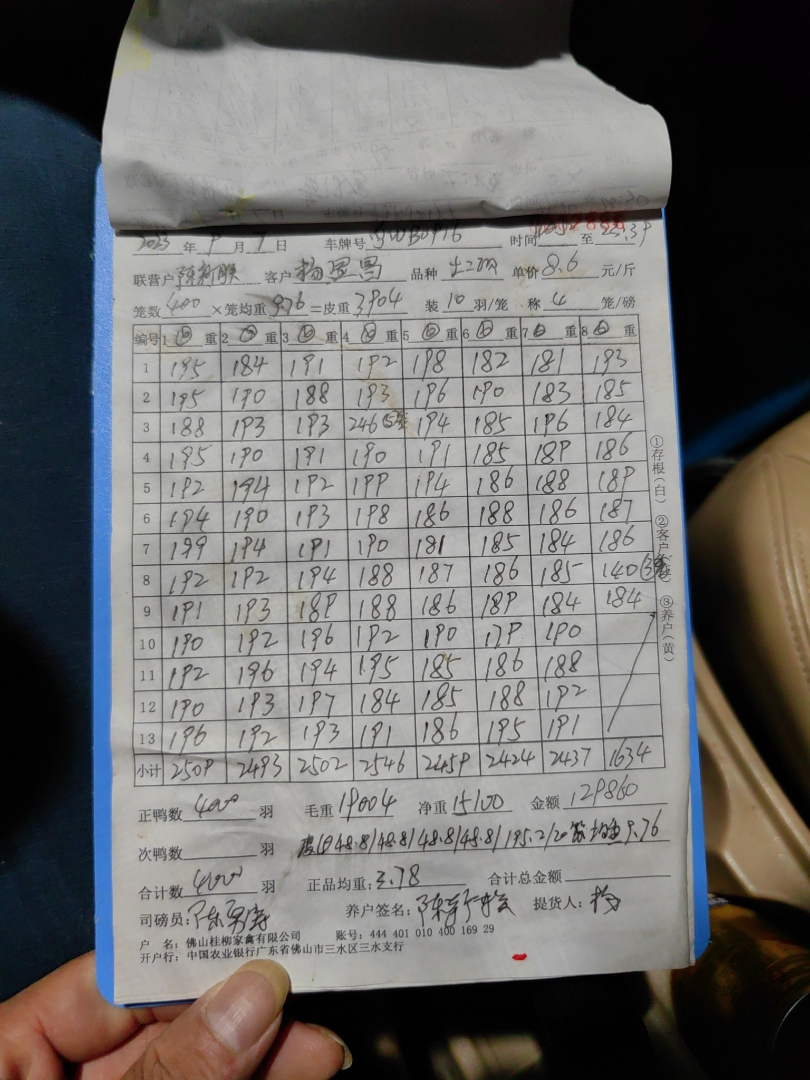 2023 年 9 月 7 日 车牌号 时间 至
联营户 陈新联 客户 杨显昌 品种 单价 8.6 元/斤
笼数 400 ×笼均重 9.76 =皮重 3904 装 10 羽/笼 称 4 笼/磅
编号 1 重 2 重 3 重 4 重 5 重 6 重 7 重 8 重
1 195 184 191 192 198 182 181 193
2 195 190 188 193 196 190 183 185
3 188 193 193 246 194 185 196 184
4 195 190 191 190 191 185 189 186
5 192 194 192 199 194 186 188 189
6 194 190 193 198 186 188 186 187
7 199 194 191 190 181 185 184 186
8 192 192 194 188 187 186 185 140
9 191 193 189 188 186 189 184 184
10 190 192 196 192 190 179 190
11 192 196 194 195 185 186 188
12 190 193 197 184 185 188 192
13 196 192 193 191 186 195 191
小计 2509 2493 2502 2546 2459 2424 2437 1634
①存根(白) ②客户 ③养户(黄)
正鸭数 4000 羽 毛重 19004 净重 15100 金额 129860
次鸭数 羽 48.8/48.8/48.8/48.8/195.2/20 9.76
合计数 4000 羽 正品均重: 3.78 合计总金额
司磅员: 养户签名: 提货人: 杨
户 名: 佛山桂柳家禽有限公司 账号: 444 401 010 400 169 29
开户行: 中国农业银行广东省佛山市三水区三水支行